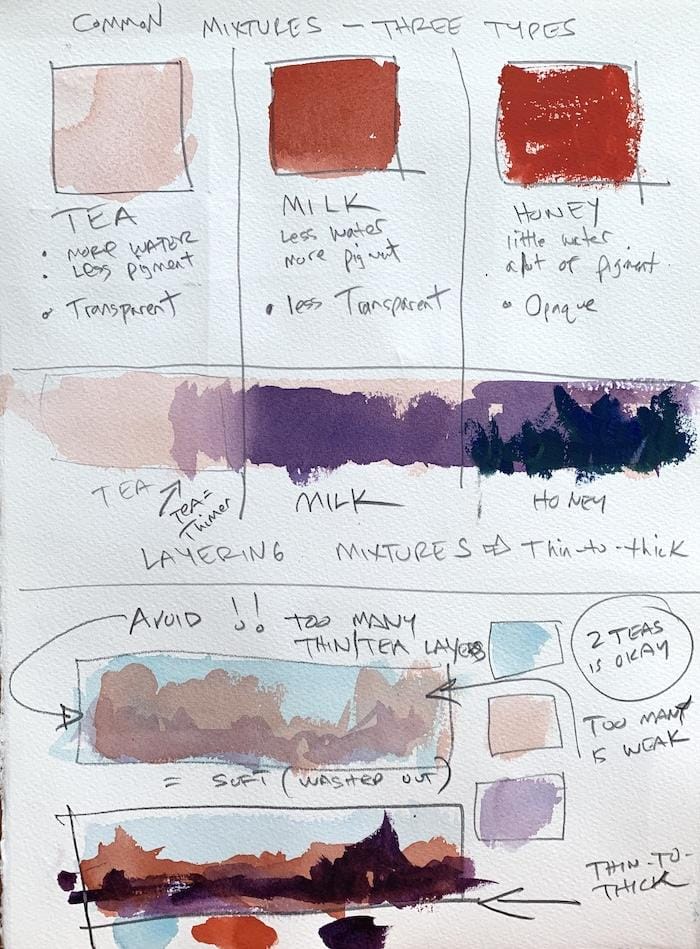 COMMON MIXTURES - THREE TYPES
TEA
• MORE WATER
• Less pigment
• Transparent
MILK
Less water
more pigment
• less Transparent
HONEY
little water
a lot of pigment.
• Opaque
TEA
TEA =
Thinner
MILK
HONEY
LAYERING MIXTURES ⇒ Thin-to-thick
AVOID !! TOO MANY
THIN/TEA LAYERS
2 TEAS
IS OKAY
TOO MANY
IS WEAK
= SOFT (WASHED OUT)
THIN-TO-
THICK